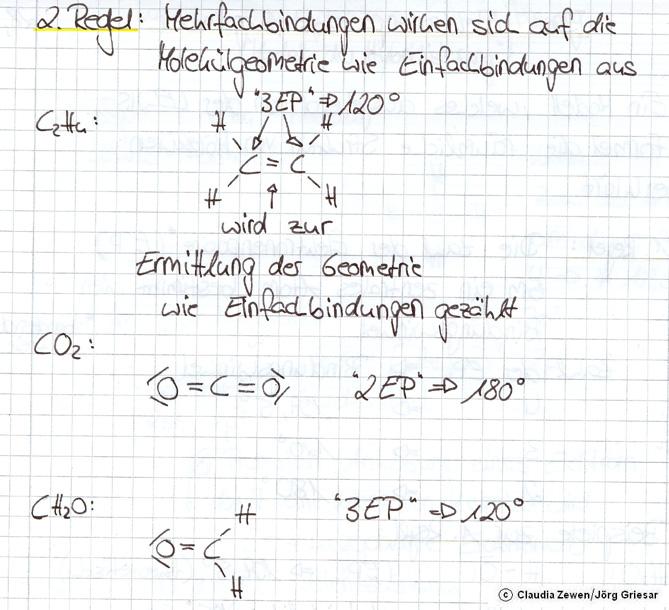 2. Regel: Mehrfachbindungen wirken sich auf die
Molekülgeometrie wie Einfachbindungen aus
"3EP" ⇒ 120°
C₂H₄:
H H
C = C
H H
wird zur
Ermittlung der Geometrie
wie Einfachbindungen gezählt
CO₂:
O = C = O "2EP" ⇒ 180°
CH₂O: H "3EP" ⇒ 120°
O = C
H
© Claudia Zewen/Jörg Griesar